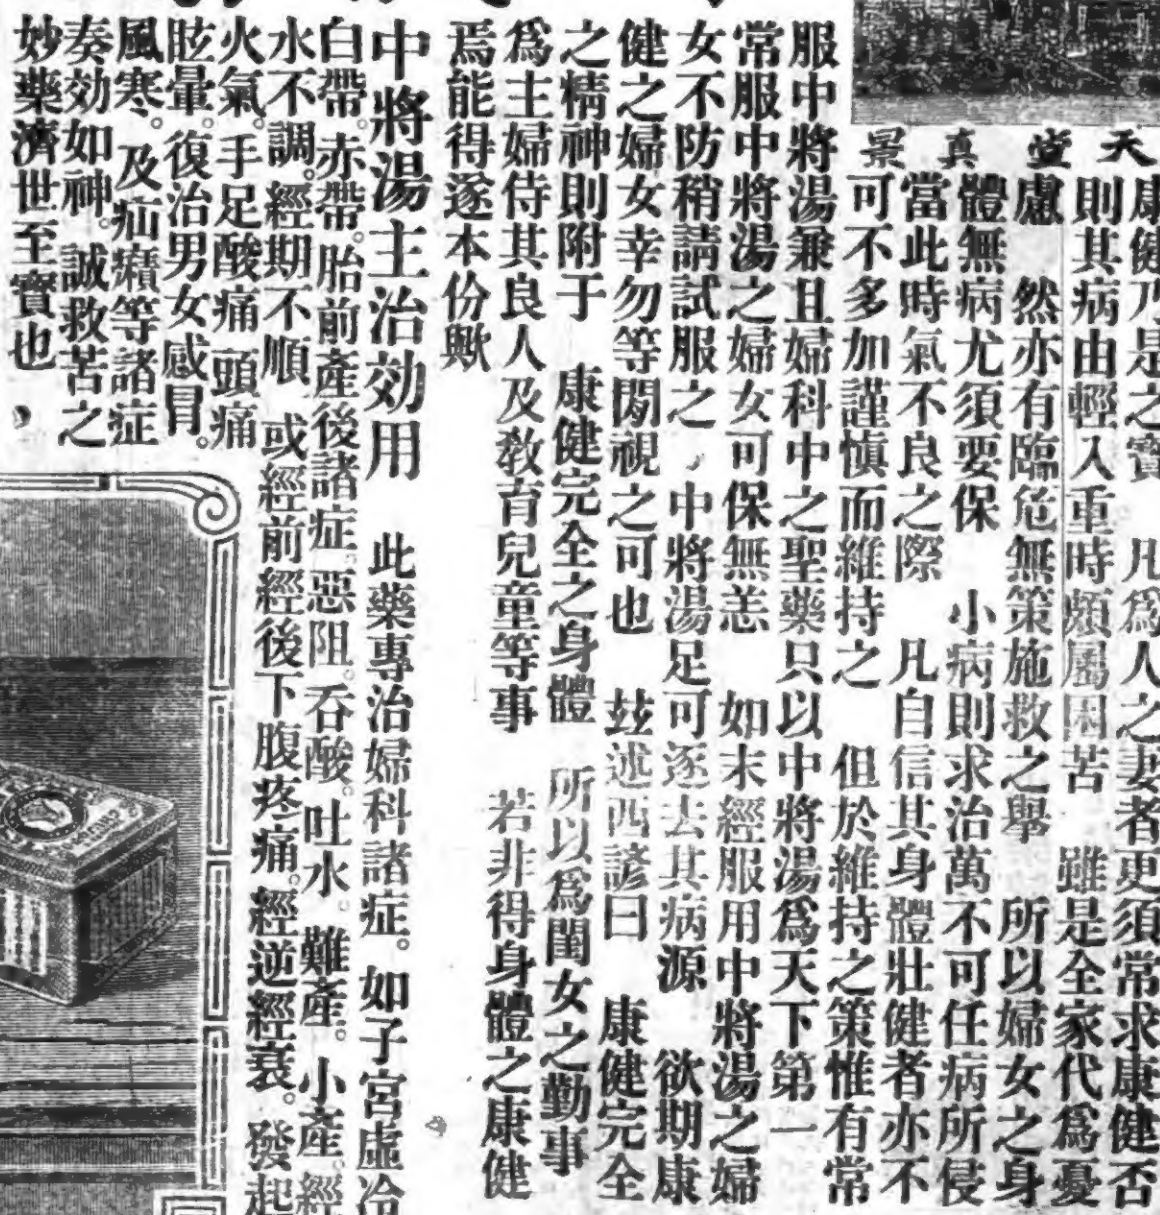 天堂真景
康健乃是之寶　凡爲人之妻者更須常求康健否
則其病由輕入重時頗屬困苦　雖是全家代爲憂
慮　然亦有臨危無策施救之舉　所以婦女之身
體無病尤須要保　小病則求治萬不可任病所侵
當此時氣不良之際　凡自信其身體壯健者亦不
可不多加謹慎而維持之　但於維持之策惟有常
服中將湯兼且婦科中之聖藥只以中將湯爲天下第一
常服中將湯之婦女可保無恙　如末經服用中將湯之婦
女不防稍請試服之，中將湯足可逐去其病源　欲期康
健之婦女幸勿等閒視之可也　玆述西諺曰　康健完全
之精神則附于　康健完全之身體　所以爲閨女之勤事
爲主婦侍其良人及教育兒童等事　若非得身體之康健
焉能得遂本份歟
中將湯主治効用　此藥專治婦科諸症。如子宮虛冷
白帶。赤帶。胎前產後諸症。惡阻。呑酸。吐水。難產。小產。經
水不調。經期不順　或經前經後下腹疼痛。經逆經衰。發起
火氣。手足酸痛　頭痛
眩暈。復治男女感冒。
風寒。及疝㿗等諸症
奏効如神。誠救苦之
妙藥濟世至寳也，